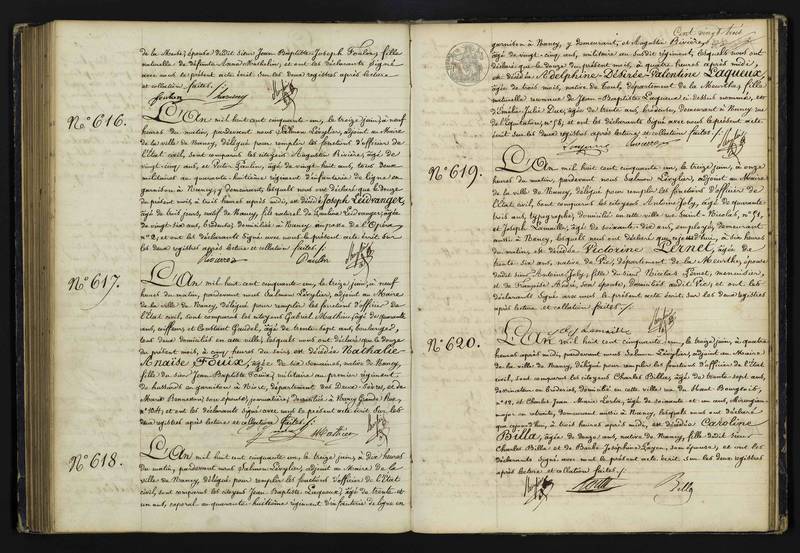 de la Meuse, épouse dudit sieur Jean Baptiste Joseph Foulon, fille
naturelle de défunte Anne Mathelin, et ont les déclarants signé
avec nous le présent acte écrit sur les deux registres après lecture
et collation faites.
Foulon
N° 616.
L'An mil huit cent cinquante-un, le treize juin, à neuf
heures du matin, pardevant nous Salmon Lévylier, adjoint au Maire
de la ville de Nancy, délégué pour remplir les fonctions d'officier de
l'État civil, sont comparus les citoyens Augustin Rivière, âgé de
vingt-cinq ans, et Victor, âgé de vingt-huit ans, tous deux
militaires au quarante-huitième régiment d'infanterie de ligne en
garnison à Nancy, y demeurant, lesquels nous ont déclaré que le douze
du présent mois, à huit heures après midi, est décédé Joseph Leidvanger,
âgé de huit jours, natif de Nancy, fils naturel de Leidvanger, âgée
de vingt-six ans, brodeuse, domiciliée à Nancy, au passe de l'Opéra
n° 2, et ont les déclarants signé avec nous le présent acte écrit sur
les deux registres après lecture et collation faites.
N° 617.
L'An mil huit cent cinquante-un, le treize juin, à neuf
heures du matin, pardevant nous Salmon Lévylier, adjoint au Maire
de la ville de Nancy, délégué pour remplir les fonctions d'officier de
l'État civil, sont comparus les citoyens Gabriel Mathieu, âgé de quarante
ans, coiffeur, et Constant, âgé de trente-sept ans, boulanger,
tous deux domiciliés en cette ville, lesquels nous ont déclaré que le douze
du présent mois, à cinq heures du soir, est décédée Nathalie
Anaïse, âgée de six semaines, native de Nancy,
fille de Jean Baptiste, militaire au premier régiment
de hussards en garnison à Niort, département des Deux-Sèvres, et de
Marie, son épouse, journalière, domiciliée à Nancy Grande Rue,
n° 104, et ont les déclarants signé avec nous le présent acte écrit sur les
deux registres après lecture et collation faites.
Mathieu
N° 618.
L'An mil huit cent cinquante-un, le treize juin, à dix heures
du matin, pardevant nous Salmon Lévylier, adjoint au Maire de la
ville de Nancy, délégué pour remplir les fonctions d'officier de l'État
civil, sont comparus les citoyens Jean Baptiste Laqueux, âgé de trente et
un ans, caporal au quarante-huitième régiment d'infanterie de ligne en
Cent vingt trois
garnison à Nancy, y demeurant, et Augustin Rivière,
âgé de vingt-cinq ans, militaire au susdit régiment, lesquels nous ont
déclaré que le douze du présent mois, à quatre heures après midi,
est décédée Adelphine-Désirée-Valentine Laqueux,
âgée de trois mois, native de Toul, département de la Meurthe, fille
naturelle reconnue de Jean-Baptiste Laqueux ci dessus nommé, et
d'Émilie Julie Duc, âgée de trente ans, brodeuse, demeurant à Nancy rue
de l'Équitation, n° 58, et ont les déclarants signé avec nous le présent acte
écrit sur les deux registres après lecture et collation faites.
N° 619.
L'An mil huit cent cinquante-un, le treize juin, à onze
heures du matin, pardevant nous Salmon Lévylier, adjoint au Maire
de la ville de Nancy, délégué pour remplir les fonctions d'officier de
l'État civil, sont comparus les citoyens Antoine Joly, âgé de quarante
trois ans, typographe, domicilié en cette ville rue Saint-Nicolas, n° 51,
et Joseph Lamaille, âgé de soixante-dix ans, employé, demeurant
aussi à Nancy, lesquels nous ont déclaré que aujourd'hui, à six heures
du matin, est décédée Victorine Pernet, âgée de
trente-six ans, native de Vic, département de la Meurthe, épouse
dudit sieur Antoine Joly, fille du sieur Nicolas Pernet, menuisier,
et de Françoise André, son épouse, domiciliés audit Vic, et ont les
déclarants signé avec nous le présent acte écrit sur les deux registres
après lecture et collation faites.
Joly Lamaille
N° 620.
L'An mil huit cent cinquante-un, le treize juin, à quatre
heures après midi, pardevant nous Salmon Lévylier, adjoint au Maire
de la ville de Nancy, délégué pour remplir les fonctions d'officier de l'État
civil, sont comparus les citoyens Charles Billa, âgé de trente-sept ans,
dessinateur en broderies, domicilié en cette ville rue du Haut Bourgeois,
n° 19, et Charles Jean Marie, âgé de soixante et un ans, chirurgien
major en retraite, demeurant aussi à Nancy, lesquels nous ont déclaré
que aujourd'hui, à trois heures après midi, est décédée Caroline
Billa, âgée de douze ans, native de Nancy, fille dudit sieur
Charles Billa et de Barbe Joséphine, son épouse, et ont les
déclarants signé avec nous le présent acte écrit sur les deux registres
après lecture et collation faites.
Billa